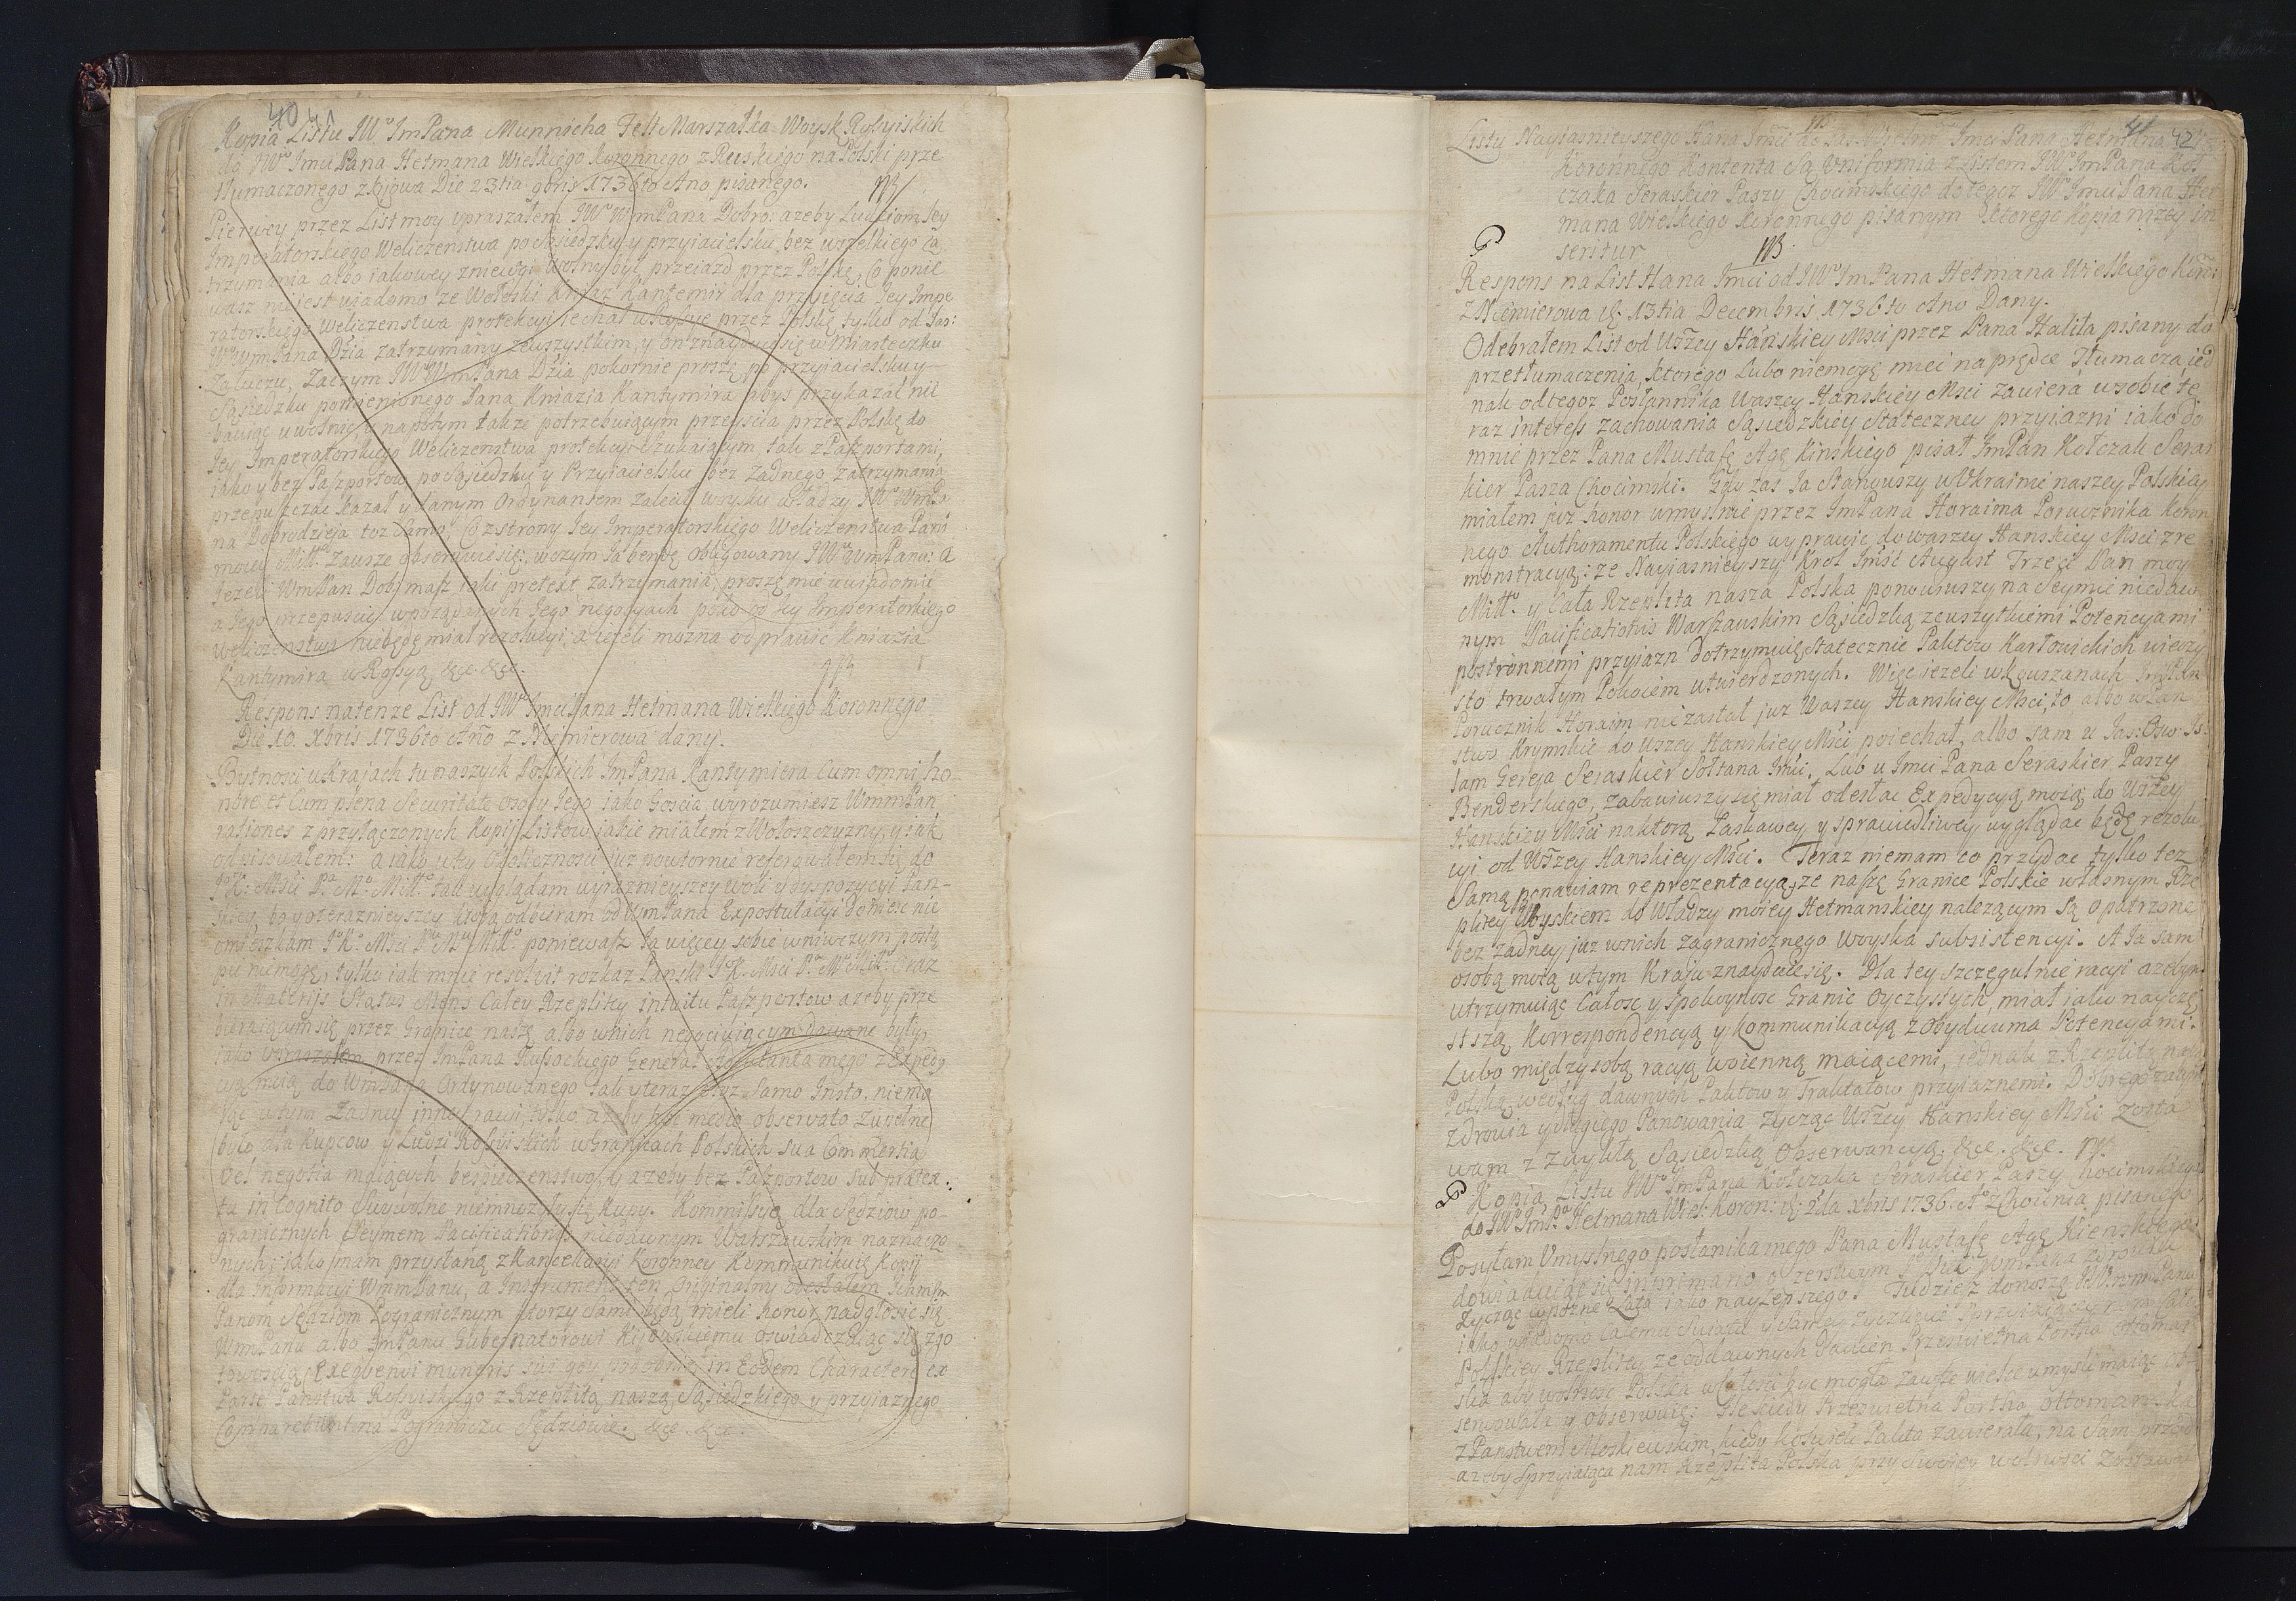 40
Kopia Listu JWo ImPana Munnicha Felt Marszałka Woysk Rossyiskich
do JWo Imci Pana Hetmana Wielkiego Koronnego z Ruskiego na Polski prze
tłumaczonego z Kijowa Die 23tia 9bris 1736to Ano pisanego.
Pierwey przez List moy upraszałem JWo WmPana Dobro: azeby Ludziom Jey
Imperatorskiego Weliczenstwa po Sąsiedzku y przyiacielsku bez wszelkiego za
trzymania albo iakowey zniewagi wolny był przeiazd przez Polskę, Co ponie
wasz nie iest wiadomo ze Wołoski Kniaz Kantemir dla przyięcia Jey Impe
ratorskiego Weliczenstwa protekcyi iechał w Rossyę przez Polskę tylko od Jas:
WWmPana Dzia zatrzymany ze wszystkim, y on znayduie się w Miasteczku
Załuczu, Zaczym JWo WmPana Dzia pokornie proszę, po przyiacielsku y
Sąsiedzku pomienionego Pana Kniazia Kantymira abys przykazał nie
bawiąc uwolnic, y na potym takze potrzebuiącym przeyscia przez Polskę do
Jey Imperatorskiego Weliczenstwa protekcyi Szukaiącym, tak z Paszportami,
iako y bez Paszportow po Sąsiedzku y Przyiacielsku bez Zadnego zatrzymania
przepuszczac kazał y danym Ordynansem zalecił woysku władzy JWo WmPa
na Dobrodzieja toz Samo, Co z strony Jey Imperatorskiego Weliczenstwa Pani
mowey Miłł: Zawsze obserwuie się: w czym Ja bendę obligowany JWo WmPana: A
Jezeli WmPan Dob: masz iaki pretext zatrzymania, proszę mie uwiadomic
a Jego przepuscic w porządanych Jego negocyach poko od Jey Imperatorskiego
weliczenstwa nie będę miał rezolucyi, a iezeli mozna odprawic Kniazia
Kantymira w Rossyą &c. &c.
Respons na tenze List od JWo Imci Pana Hetmana Wielkiego Koronnego
Die 10. Xbris 1736to Ano z Niemierowa dany.
Bytnosci w Krajach tu naszych Polskich ImPana Kantymiera Cum omni ho
nore et Cum plena Securitate osoby Jego jako Goscia, wyrozumiesz WmmPan
rationes z przyłączonych Kopij Listow jakie miałem z Wołoszczyzny, y jak
odpisowałem: a iako w tey Okolicznosci juz powtornie referowałem się do
JoKo: Msci Pa Mo: Miłło tak wyglądam wyrażnieyszey woli y dyspozycyi Pan-
skiey, bo y o terazniejszey ktorą odbieram od WmPana Expostulacyi doniesc nie
omieszkam JoKo: Msci Pa Mo Miłło. poniewasz Ja więcey sobie w niwczym postą
pic nie mogę, tylko iak mnie resolvit rozkaz Panski JoK: Msci Pa Mo Miłło: Oraz
in Materijs Status Mens Całey Rzeplitey intuitu Paszportow azeby prze
bieraiącym się przez Granice naszę albo w nich negociuiącym dawane były,
Jako upraszałem przez ImPana Russockiego General Adjutanta mego z Expedy
cyą moią do WmPana Ordynowanego tak y teraz o toz Samo Insto, niema
iąc w tym Zadney inney racyi, tylko azeby hoc medio observato Zupełne
było dla Kupcow y Ludzi Rossyiskich w Granicach Polskich sua Commertia
Vel negotia maiących bespieczenstwo, y azeby bez Paszportow sub prætex-
tu incognito Swywolne niemnozyły się Kupy. Kommissyą dla Sędziow po-
granicznych Seymem Pacificationis niedawnym Warszawskim naznaczo
nych: iako mam przysłaną z Kancellaryi Koronney Kommunikuię Kopij
dla Informacyi WmmPanu, a Instrument ten Originalny odesłałem Samym
Panom Sędziom Pogranicznym ktorzy Sami będą mieli honor nadgłosic się
WmmPanu albo ImPanu Gubernatorowi Kijowskiemu oswiadczaiąc się z go
towoscią exequendi muneris sui gdy podobniez in Eodem Charactere ex
Parte Panstwa Rossyiskiego z Rzeplitą naszą Sąsiedzkiego y przyiaznego
Comparebunt na Pograniczu Sędziowie. &c. &c.
41 42
Listu Nayiasnieyszego Hana Imci do Jas: Wielmo Imci Pana Hetmana
Koronnego Kontenta Są Uniformia z Listem JWo ImPana Koł
czaka Seraskier Paszy Chocimskiego do tegoz JWo Imci Pana Het
mana Wielkiego Koronnego pisanym ktorego Kopia nizey in
seritur
NB
Respons na List Hana Imci od JWo ImPana Hetmana Wielkiego Koro:
z Niemierowa d: 13tia Decembris 1736to Ano Dany.
Odebrałem List od Wszey Hanskiey Msci przez Pana Halila pisany do
przetłumaczenia, ktorego Lubo niemogę miec na prędce Tłumacza, ied
nak od tegoz Posłannika Waszey Hanskiey Msci Zawiera w sobie te
raz interess zachowania Sąsiedzkiey Stateczney przyiazni iako do
mnie przez Pana Mustafę Agę Kinskiego pisał ImPan Kołczak Seras
kier Pasza Chocimski. Gdy zas Ja Stanąwszy w Ukrainie naszey Polskiey
miałem juz honor umyslnie przez ImPana Horaima Porucznika koron
nego Authoramentu Polskiego wyprawic do waszey Hanskiey Msci z re
monstracyą: ze Nayiasnieyszy Krol Imść August Trzeci Pan moy
Miłło. y Cała Rzeplita nasza Polska ponowiwszy na Seymie niedaw
nym Pacificationis Warszawskim Sąsiedzką ze wszytkiemi Potencyami
postronnemi przyjazn dotrzymuię Statecznie Paktow Karłowickich wieczy
sto trwałym Pokoiem utwierdzonych. Więc iezeli w Kouszanach ImPan
Porucznik Horaim nie zastał juz Waszey Hanskiey Msci, to albo w Pan
stwo Krymskie do Wszey Hanskiey Msci poiechał, albo sam u Jas: Osw: Is-
lam Gereja Seraskier Sołtana Imci. Lub u Imci Pana Seraskier Paszy
Benderskiego, zabawiwszy się miał odesłac Expedycyą moią do Wszey
Hanskiey Msci na ktorą Łaskawey y sprawiedliwey wyglądac będę rezolu
cyi od Wszey Hanskiey Msci. Teraz niemam co przydac tylko tez
Samą ponawiam reprezentacyą, ze naszę Granice Polskie własnym Rze
pltey Woyskiem do Władzy moiey Hetmanskiey nalezącym Są opatrzone
bez Zadney juz w nich zagranicznego woyska subsistencyi. A Ja sam
osobą moią w tym Kraju znayduię się. Dla tey szczegulnie racyi azebym
utrzymuiąc Całosc y spokoynosc Granic Oyczystych, miał iako nayczę
stszą Korrespondencyą y kommunikacyą z obydwuma Potencyami.
Lubo między sobą racyą woienną maiącemi, jednak z Rzeplitą naszą
Polską według dawnych Paktow y Traktatow przyiaznemi. Dobrego zatym
zdrowia y długiego Panowania Zycząc Wszey Hanskiey Msci zosta
wam z zwykłą Sąsiedzką Obserwancyą. &c. &c.
Kopia Listu JWo ImPana Kołczaka Seraskier Paszy Chocimskiego
do JWo ImPa Hetmana Wiel: Koron: d: 2da Xbris 1736. Ao z Chocimia pisanego
Posyłam Umyslnego posłanika mego Pana Mustafę Agę Kienskiego
dowiaduiąc się inprimario o zerskwym JWo WmPana zdrowiu
Zycząc w pozne Lata iako nayLepszego. Tudziesz donoszę JWWmPanu
iako wiadomo Całemu Swiatu y Samey
Polskiey Rzeplitey ze od dawnych Przeswietna Portha Ottomań
ska aby wolnosc Polska w Całosci byc mogła zawsze wielce umysł maiąc ob
serwowała y obserwuię: Przeswietna Portha Ottomanska
z Panstwem Moskiewskim, kiedy Pakta zawierała, na Sam przod
azeby sprzyiaiąca nam Rzeplita Polska przy swoiey wolnosci Zostawa